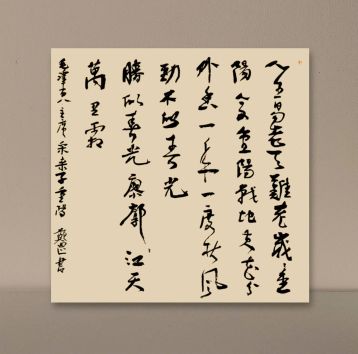 人生易老天難老歲歲重
陽今又重陽戰地黃花分
外香一年一度秋風
勁不似春光
勝似春光寥廓江天
萬里霜
毛澤東主席采桑子重陽 書